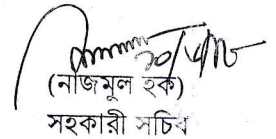 (নাজমুল হক)
সহকারী সচিব